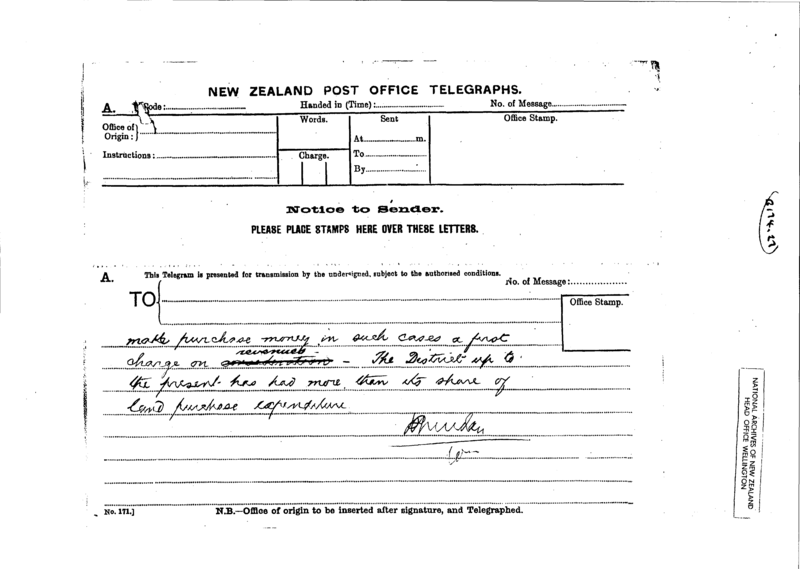 NEW ZEALAND POST OFFICE TELEGRAPHS.
A. Code: Handed in (Time): No. of Message
Office of Origin: Words. Sent Office Stamp.
At m.
Instructions: Charge. To
By
Notice to Sender.
PLEASE PLACE STAMPS HERE OVER THESE LETTERS.
A. This Telegram is presented for transmission by the undersigned, subject to the authorised conditions.
No. of Message:
TO Office Stamp.
make purchase money in such cases a first
revenues
charge on consideration – The District up to
the present has had more than its share of
land purchase expenditure
No. 171.] N.B.—Office of origin to be inserted after signature, and Telegraphed.
NATIONAL ARCHIVES OF NEW ZEALAND
HEAD OFFICE WELLINGTON